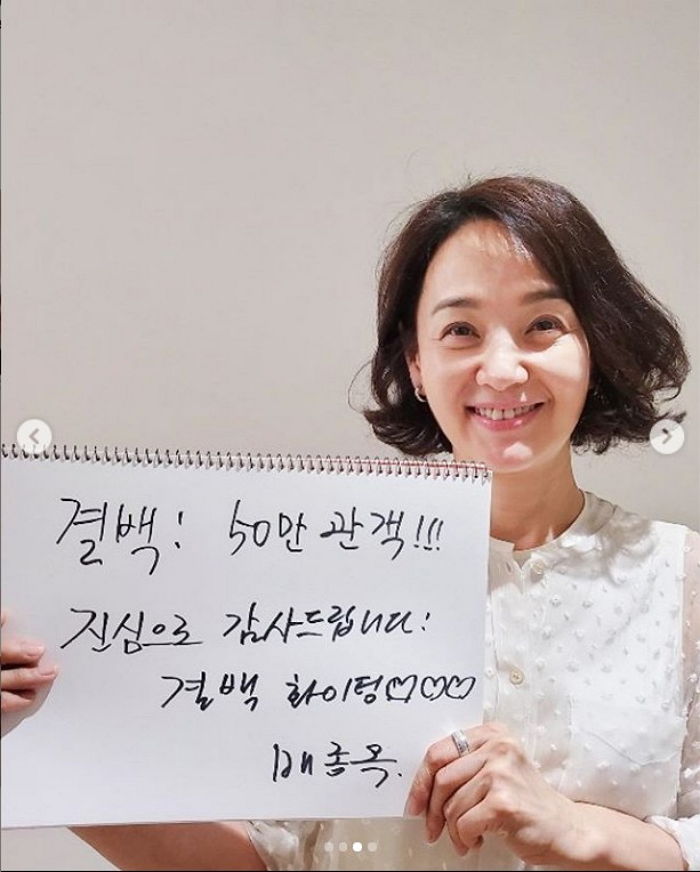 결백! 50만 관객!!!
진심으로 감사드립니다!
결백 화이팅♡♡♡
배종옥.